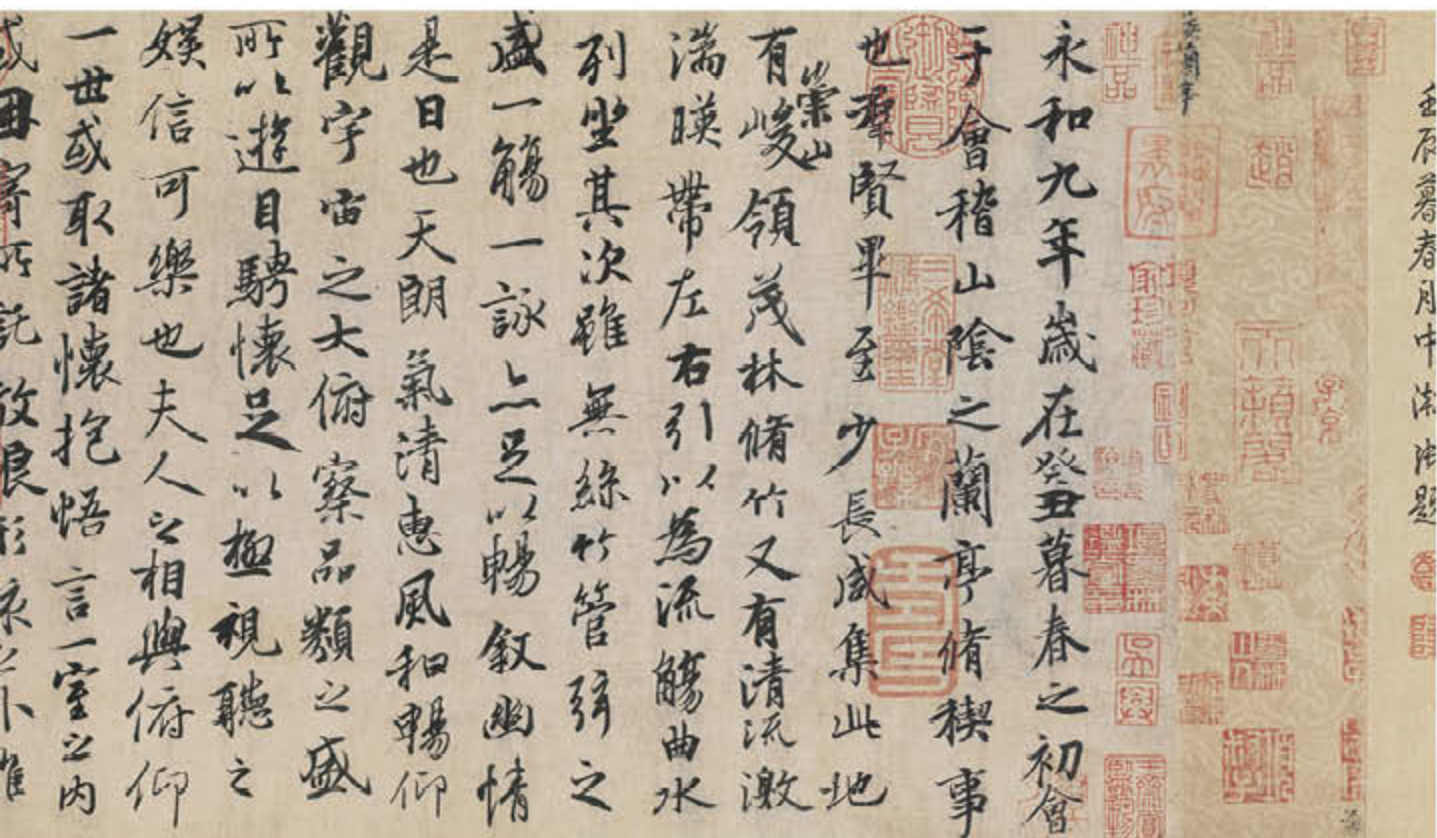 壬辰暮春月中
神品
永和九年歲在癸丑暮春之初會
于會稽山陰之蘭亭脩稧事
也羣賢畢至少長咸集此地
有崇山峻領茂林脩竹又有清流激
湍暎帶左右引以為流觴曲水
列坐其次雖無絲竹管弦之
盛一觴一詠亦足以暢叙幽情
是日也天朗氣清惠風和暢仰
觀宇宙之大俯察品類之盛
所以遊目騁懷足以極視聽之
娛信可樂也夫人之相與俯仰
一世或取諸懷抱悟言一室之內
或因寄所託放浪形骸之外雖